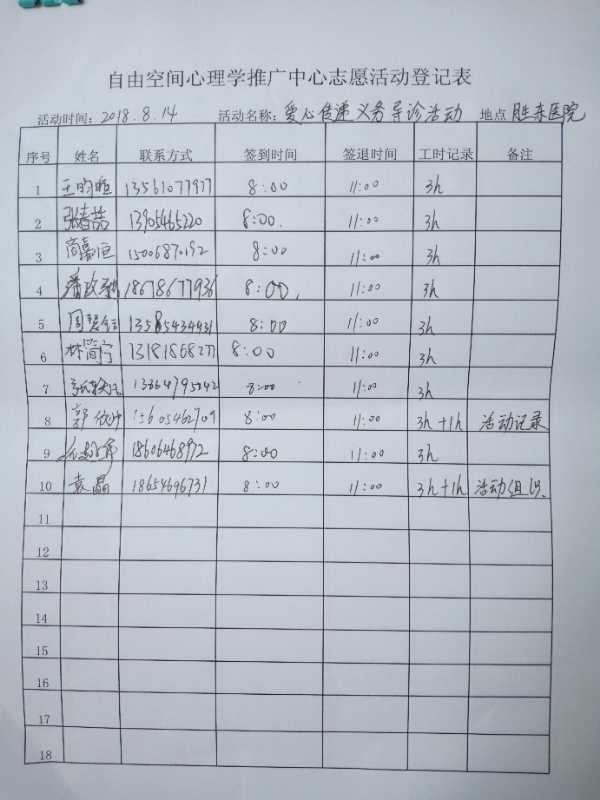 自由空间心理学推广中心志愿活动登记表
活动时间：2018.8.14 活动名称：爱心传递义务导诊活动 地点 胜东医院
序号 姓名 联系方式 签到时间 签退时间 工时记录 备注
1 13561077977 8:00 11:00 3h
2 张春喆 13905465220 8:00. 11:00 3h
3 商嘉恒 15006870192 8:00 11:00 3h
4 18678677936 8:00. 11:00 3h
5 13585434931 8:00 11:00 3h
6 林简宁 13181868277 8:00 11:00 3h
7 8:00 11:00 3h
8 15605462709 8:00 11:00 3h+1h 活动记录
9 18606468972 8:00 11:00 3h
10 袁晶 18654696731 8:00 11:00 3h+1h 活动组织
11
12
13
14
15
16
17
18